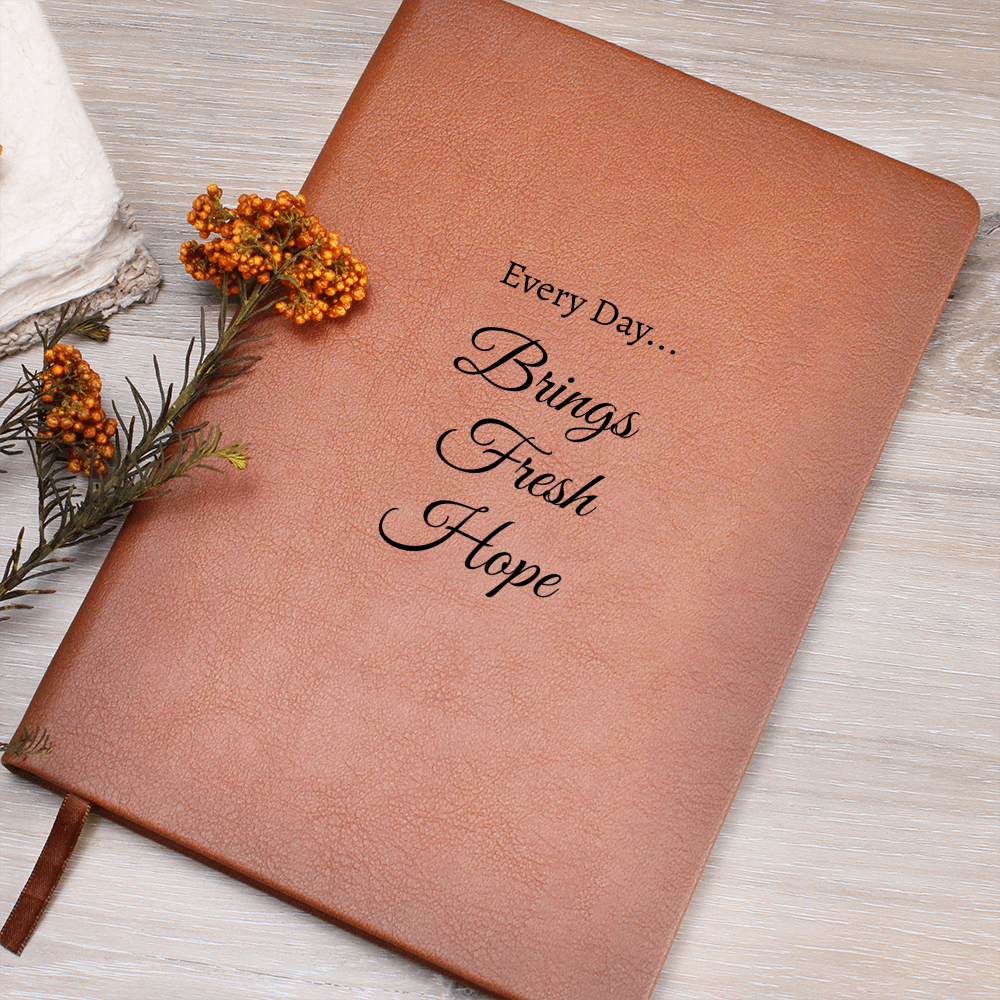 Every Day...
Brings
Fresh
Hope